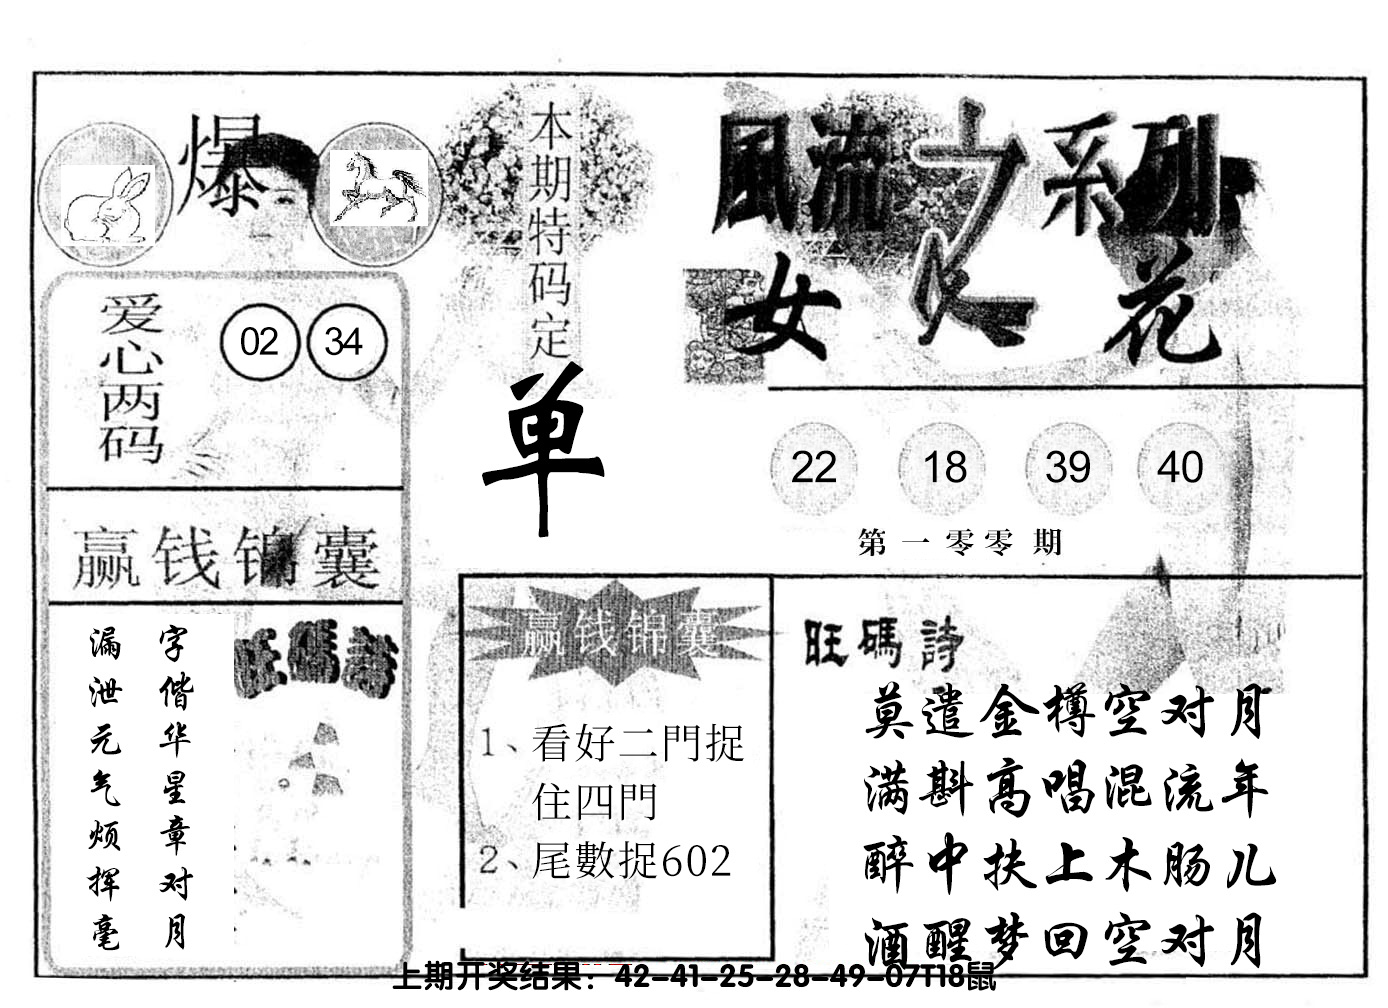 爆
本期特码定
单
風流之系列
女人花
爱心两码
02 34
22 18 39 40
第一零零期
赢钱锦囊
字偕华星章对月
漏泄元气烦挥毫
旺碼詩
赢钱锦囊
1、看好二門捉
住四門
2、尾數捉602
旺碼詩
莫遣金樽空对月
满斟高唱混流年
醉中扶上木肠儿
酒醒梦回空对月
上期开奖结果：42-41-25-28-49-07T18鼠